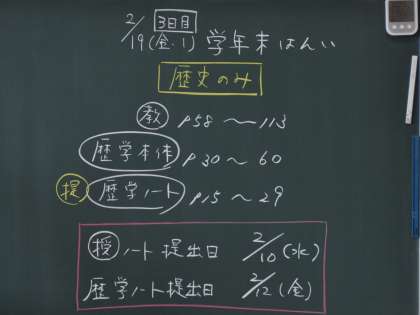 2/19(金・1) 3日目 学年末はんい
歴史のみ
教 P58～113
歴学本体 P30～60
提 歴学ノート P15～29
授 ノート提出日 2/10(水)
歴学ノート提出日 2/12(金)